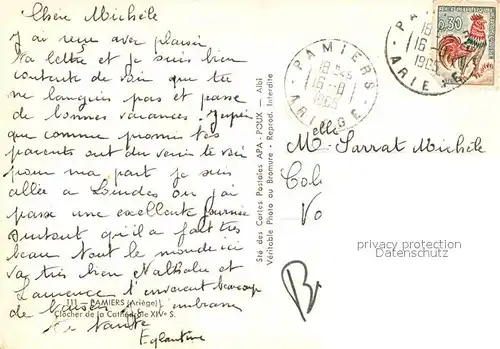 Chère Michèle
J'ai reçu avec plaisir
ta lettre et je suis bien
contente de voir que tu
ne languis pas et passe
de bonnes vacances. J'espère
que comme promis tes
parents ont du venir te voir
pour ma part je suis
allée a Lourdes ou j'ai
passé une excellente journée
surtout qu'il a fait très
beau Tout le monde ici
va très bien Nathalie et
Laurence t'envoient beaucoup
de baisers t'embrasse
ta tante
Eglantine
111 - PAMIERS (Ariège)
Clocher de la Cathédrale XIVe S.
Sté des Cartes Postales APA-POUX - Albi
Véritable Photo au Bromure - Reprod. Interdite
PAMIERS
18 H45
16-8
1965
ARIEGE
PA
18
16-
1965
ARIEGE
0,30
Melle Sarrat Michèle
Col
Vo
privacy protection
Datenschutz